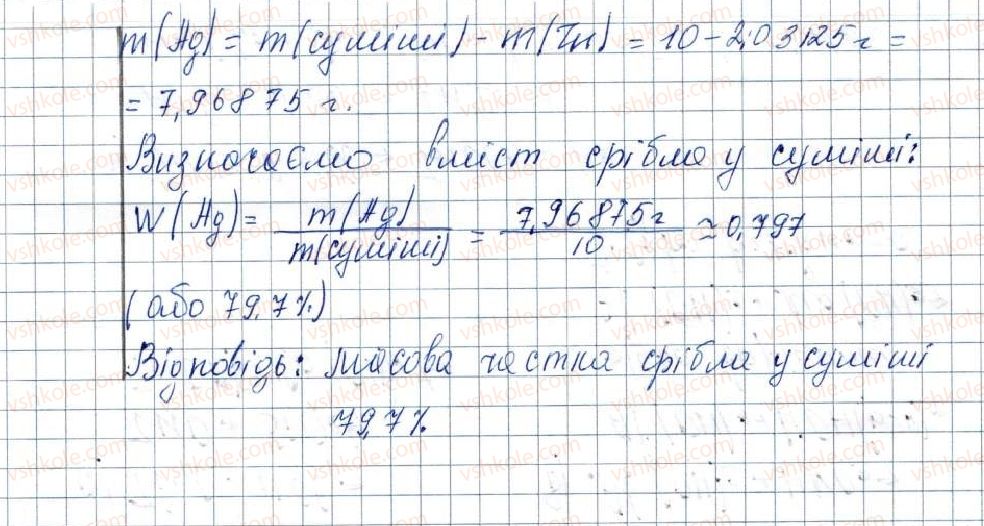 m(Ag) = m(суміші) - m(Zn) = 10 - 2,03125 г =
= 7,96875 г.
Визначаємо вміст срібла у суміші:
W(Ag) = m(Ag) / m(суміші) = 7,96875 г / 10 ≃ 0,797
(або 79,7%)
Відповідь: масова частка срібла у суміші
79,7%
vshkole.com